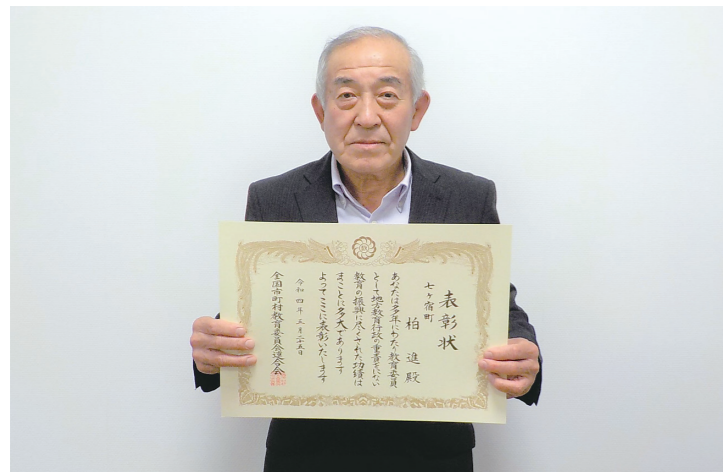 表彰状
七ヶ宿町
柏進殿
あなたは多年にわたり教育委員
として地方教育行政の重責をにない
教育の振興に尽くされた功績は
まことに多大であります
よってここに表彰いたします
令和四年三月二十五日
全国市町村教育委員会連合会